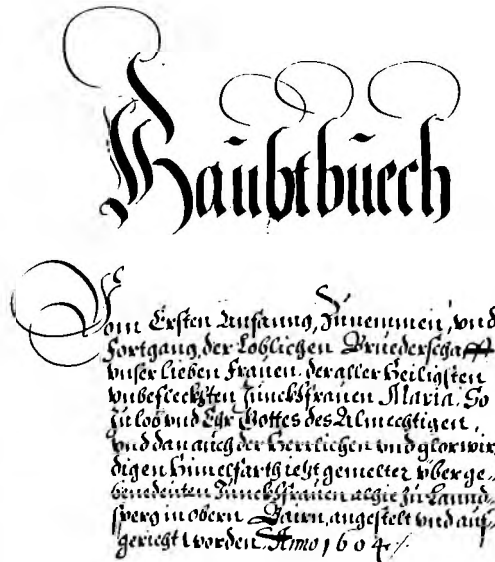 Haubtbuech
Vom Ersten Anfanng, Zunemmen, vnd
Fortgang, der Loblichen Bruederschafft
vnser lieben Frauen, der aller Heiligisten
vnbefleckhten Junckhfrauen Maria. So
zu lob vnd Ehr Gottes des Almechtigen,
vnd dan auch der Herrlichen vnd glorwir-
digen Himelfarth ietzt gemelter yberge-
benedeuten Junckhfrauen alhie zu Lannd-
sperg in obern Bairn, angestelt vnd auf-
gericht worden. Anno 1604 ·/.